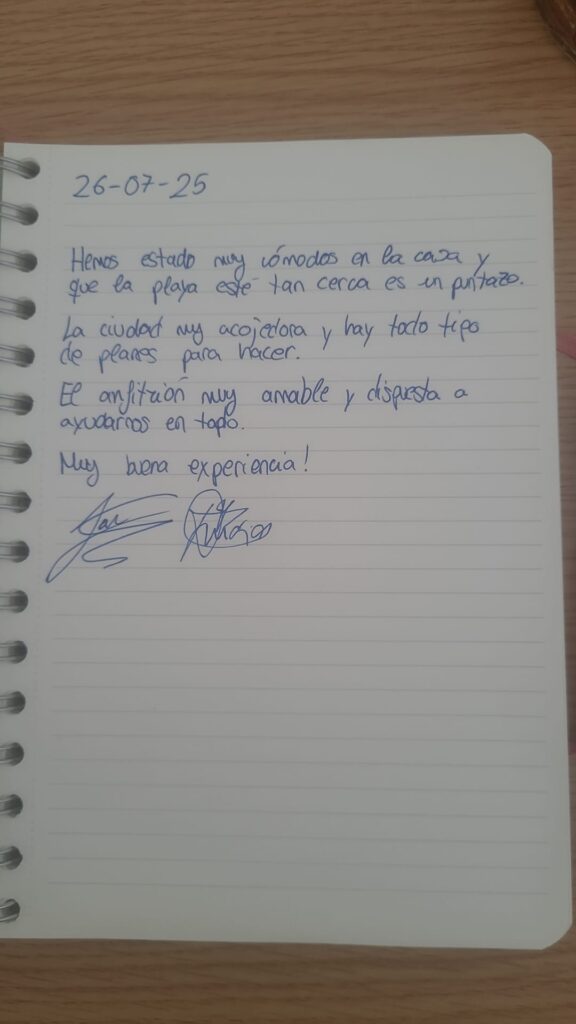 26-07-25
Hemos estado muy cómodos en la casa y
que la playa esté tan cerca es un puntazo.
La ciudad muy acojedora y hay todo tipo
de planes para hacer.
El anfitrión muy amable y dispuesta a
ayudarnos en todo.
Muy buena experiencia!